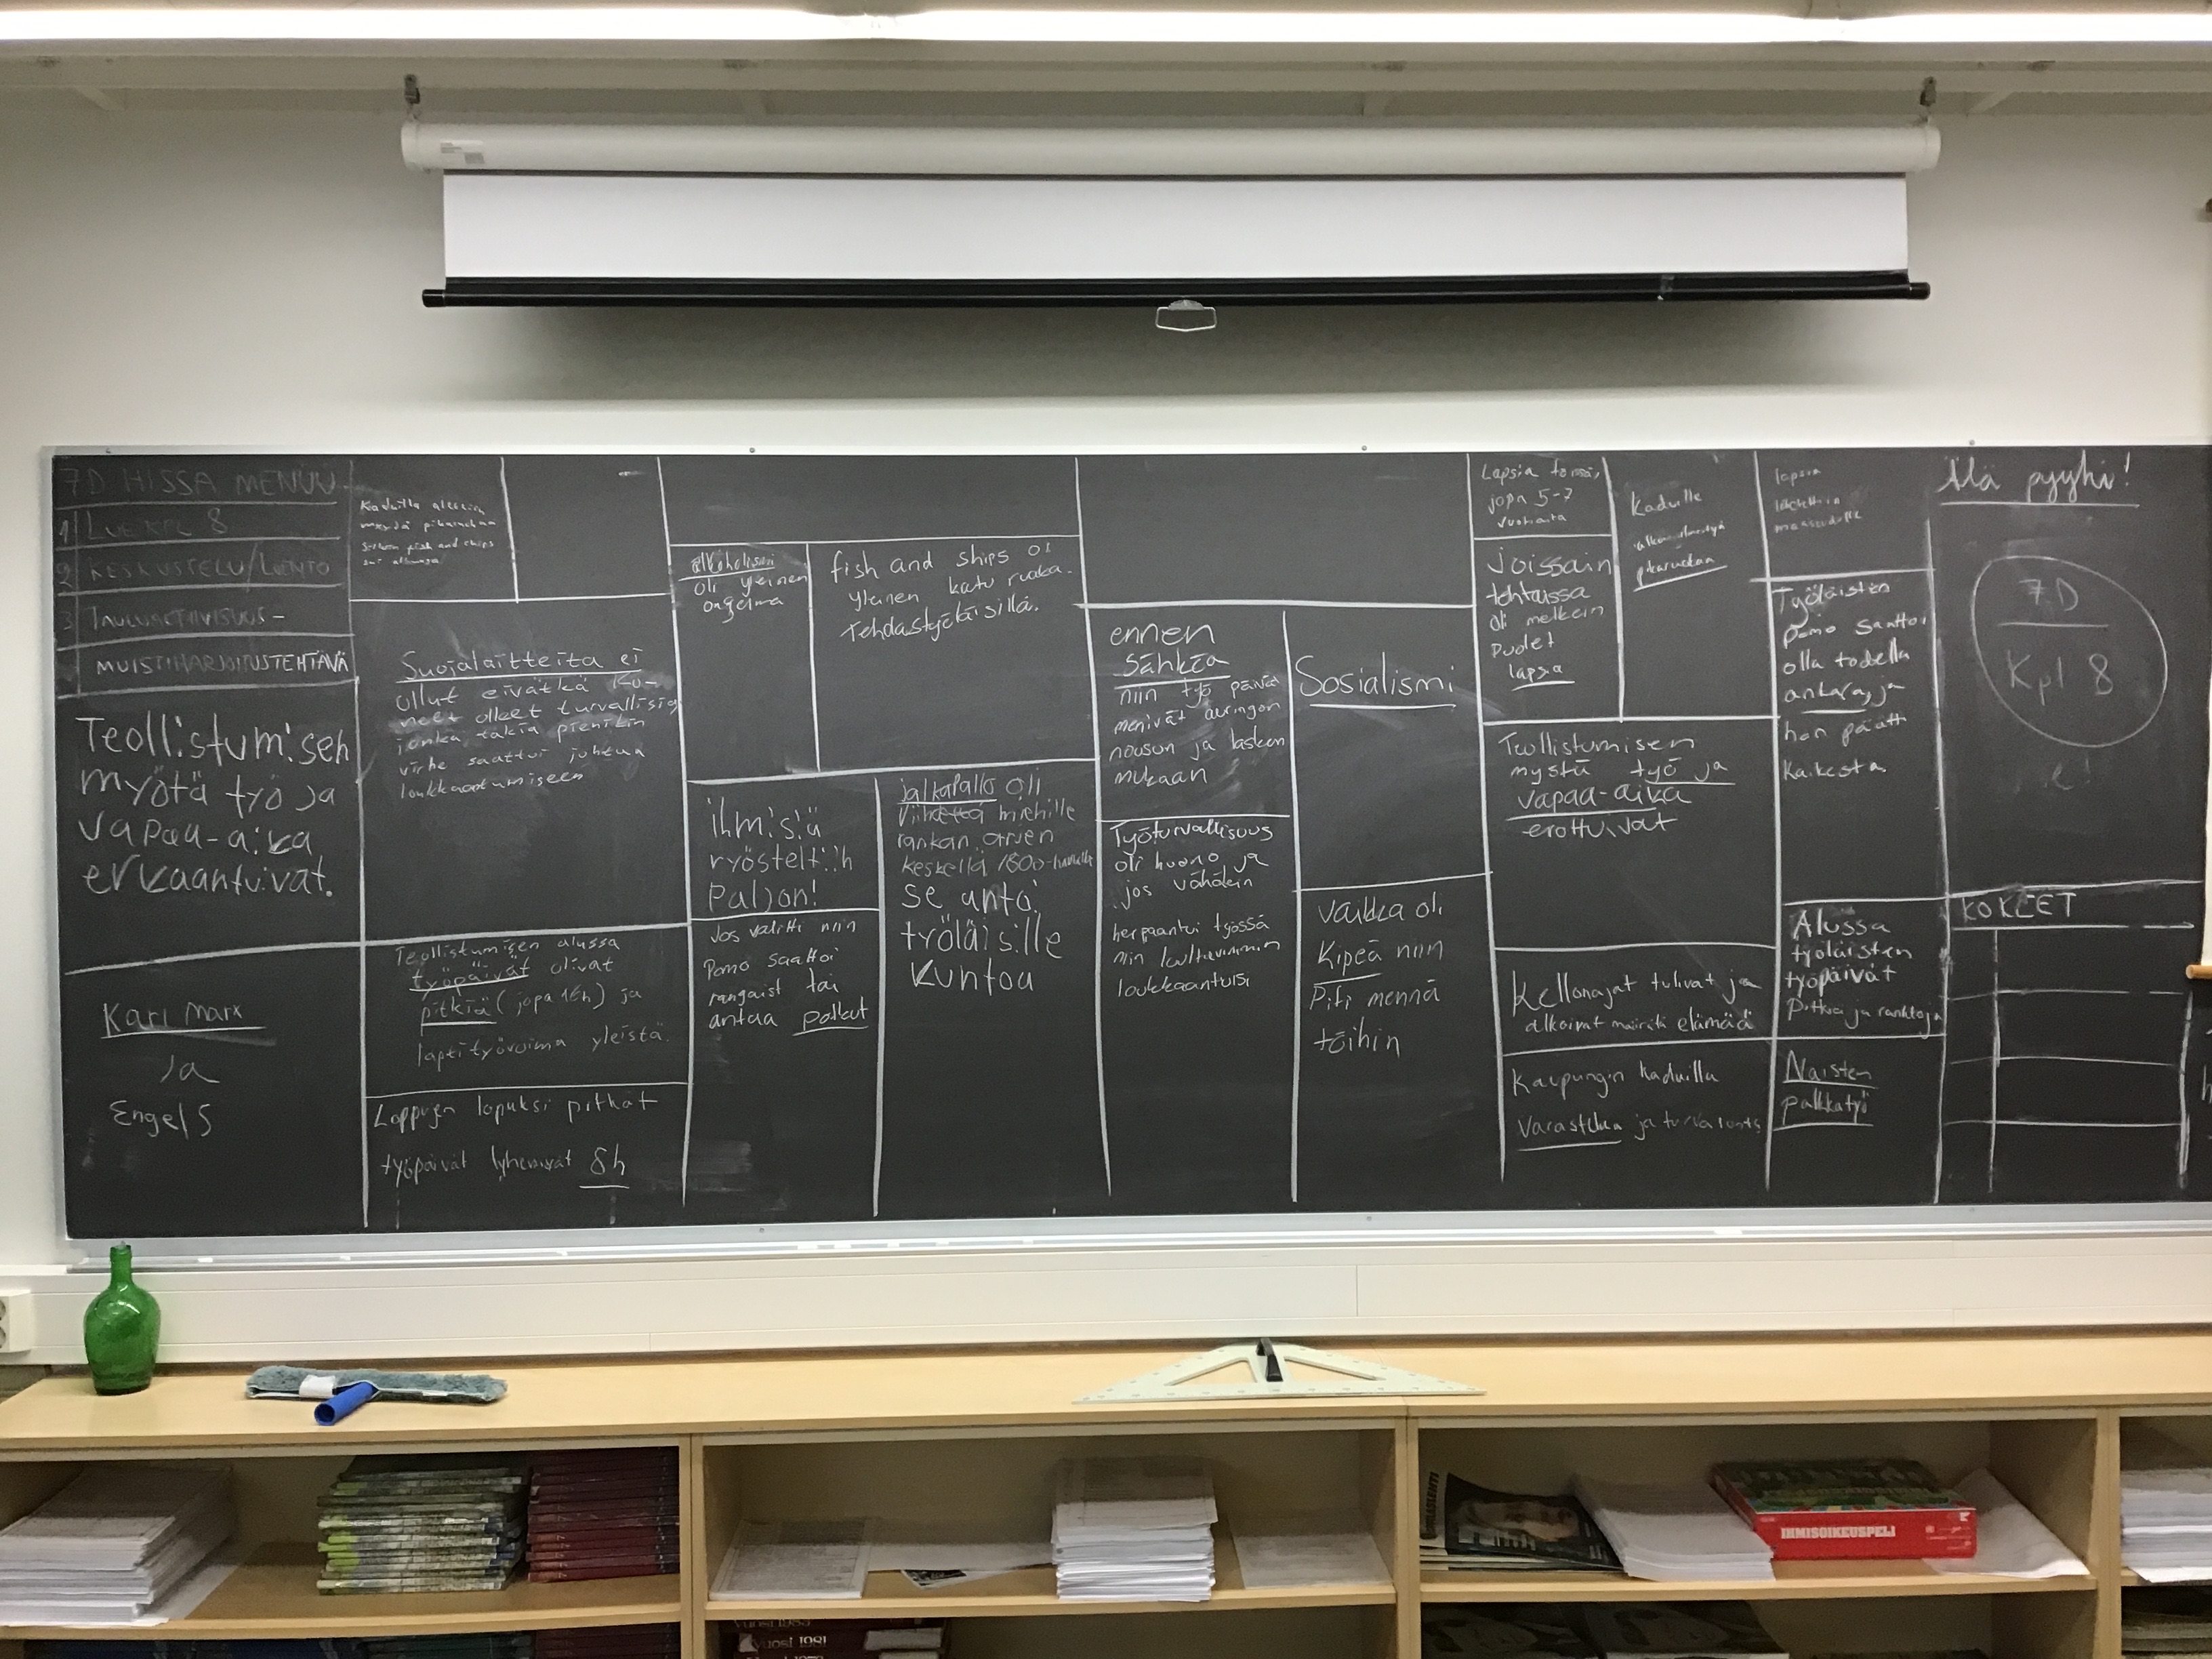 7D HISSA MENUU
1 LUE KPL 8
2 KESKUSTELU/LUENTO
3 TAULUAKTIIVISUUS-
MUISTIHARJOITUSTEHTÄVÄ
Teollistumisen
myötä työ ja
vapaa-aika
erkaantuivat.
Karl Marx
Ja
Engels
Kaduilla alettiin
myydä pikaruokaa
fish and chips
Suojalaitteita ei
ollut eivätkä ko-
neet olleet turvallisia
jonka takia pienikin
virhe saattoi johtaa
loukkaantumiseen
Teollistumisen alussa
työpäivät olivat
pitkiä (jopa 16h) ja
lapsityövoima yleistä.
Loppujen lopuksi pitkät
työpäivät lyhenivät 8h
alkoholismi
oli yleinen
ongelma
fish and ships oi
yleinen katu ruoka.
tehdastyöläisillä.
ihmisiä
ryösteltiin
Paljon!
Jos valitti niin
Pomo saattoi
rangaist tai
antaa potkut
jalkapallo oli
viihdettä miehille
rankan arjen
keskellä 1800-luvulla
se antoi
työläisille
kuntoa
ennen
sähköä
niin työ päivät
menivät auringon
nousun ja laskun
mukaan
Työturvallisuus
oli huono ja
jos vähänkin
herpaantui työssä
niin
loukkaantuisi
Sosialismi
vaikka oli
Kipeä niin
Piti mennä
töihin
Lapsia töissä,
jopa 5-7
vuotiaita
Joissain
tehtaissa
oli melkein
puolet
lapsia
Kaduille
alkoi ilmestyä
pikaruokaa
Teollistumisen
myötä työ ja
vapaa-aika
erottuivat
Kellonajat tulivat ja
alkoivat määrätä elämää
Kaupungin kaduilla
varastelua ja
lapsia
lähetettiin
maaseudulle
Työläisten
pomo saattoi
olla todella
ankara, ja
hän päätti
kaikesta
Alussa
työläisten
työpäivät
Pitkiä ja rankkoja
Naisten
palkkatyö
Älä pyyhi!
7D
Kpl 8
KOKEET
IHMISOIKEUSPELI
Vuosi 1981